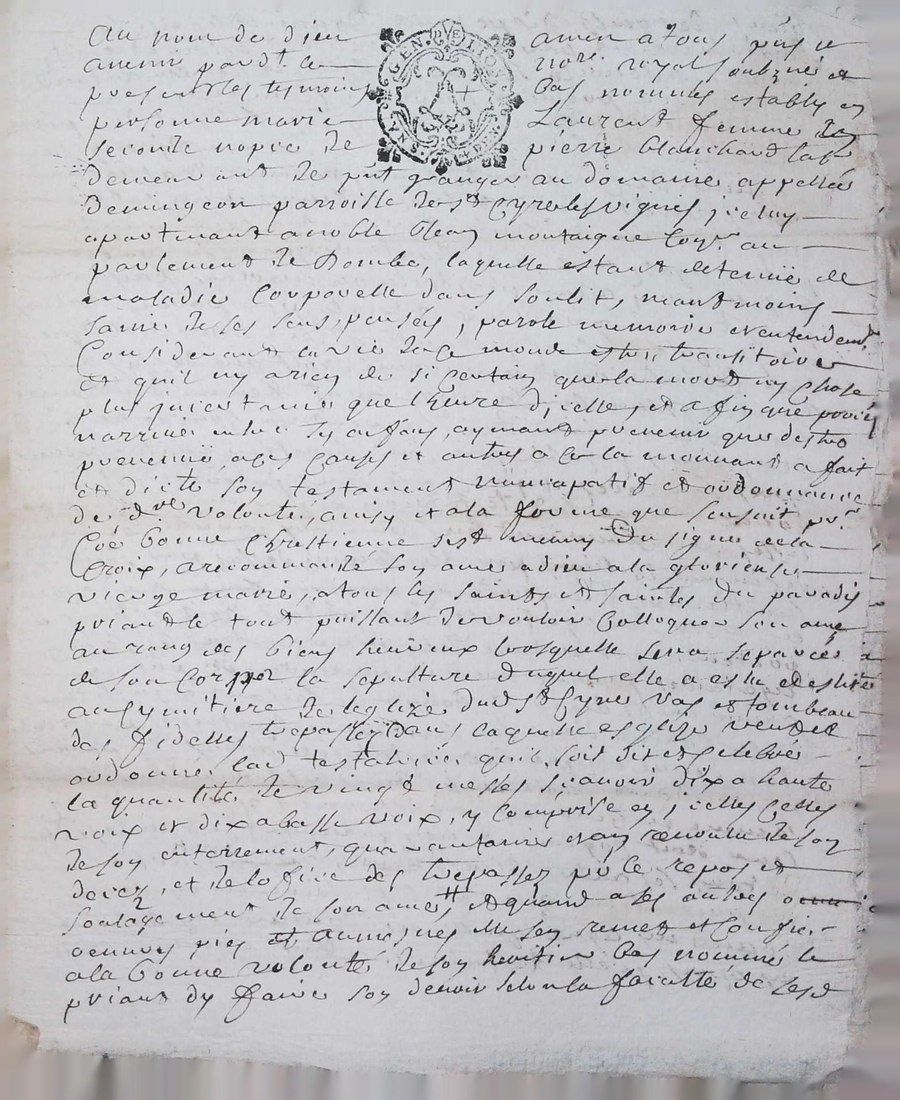 Au nom de dieu amen a tous p̃ns et
avenir pardt. le nore. royal soubzné et
presents les tesmoins bas nommes establys en
personne marie Laurent femme en
seconde nopce de pierre blanchard labr
demeurant de pñt granger au domaine appellée
Demingeon parroisse de st Cyre les vignes jceluy
apartenant a noble Jean montaigne Coyr. au
parlement de Dombe, laquelle estant detenüe de
maladie Corporelle dans son lit, neantmoins
saine de ses sens, pensées, parole memoire et entendemt
Considerant la vie de ce monde estre transitoire
et quil ny a rien de si Certain que la mort ny chose
plus jncertaine que lheure djcelle, et afin que
aymant prevenir que destre
prevenüe, a ces causes et autres a ce la mouvant a fait
et dicté son testament nuncupatif et ordonnance
de dre volonté, ainsy et a la forme que sensuit pre.
Coe bonne Chrestienne sest munny du signe de la
Croix, a recommandé son ame a dieu a la glorieuse
vierge marie, a tous les saints et saintes du paradis
priant le tout puissant de vouloir Colloquer son ame
au rang des biens heureux lorsquelle sera separée
de son Corps la sepulture duquel elle a eslu et eslite
au Cymitiere de leglize dud st Cyre vas et tombeau
des fidelles trepassez Dans laquelle esglize veut et
ordonne lad testatrice quil soit dit et Celebré
la quantité de vingt messes sçavoir dix a haute
voix et dix a basse voix, y Comprise en jcelles Celles
de son enterrement, quarantaine et an revolu de son
decez, et de lofice des trepassez pr le repos et
soulagement de son ame, et quand a ses autres
oeuvres pies et aumosnes elle sen remet et Confie
a la bonne volonté de son heritier bas nommé le
priant dy faire son devoir selon la facultté de sesd